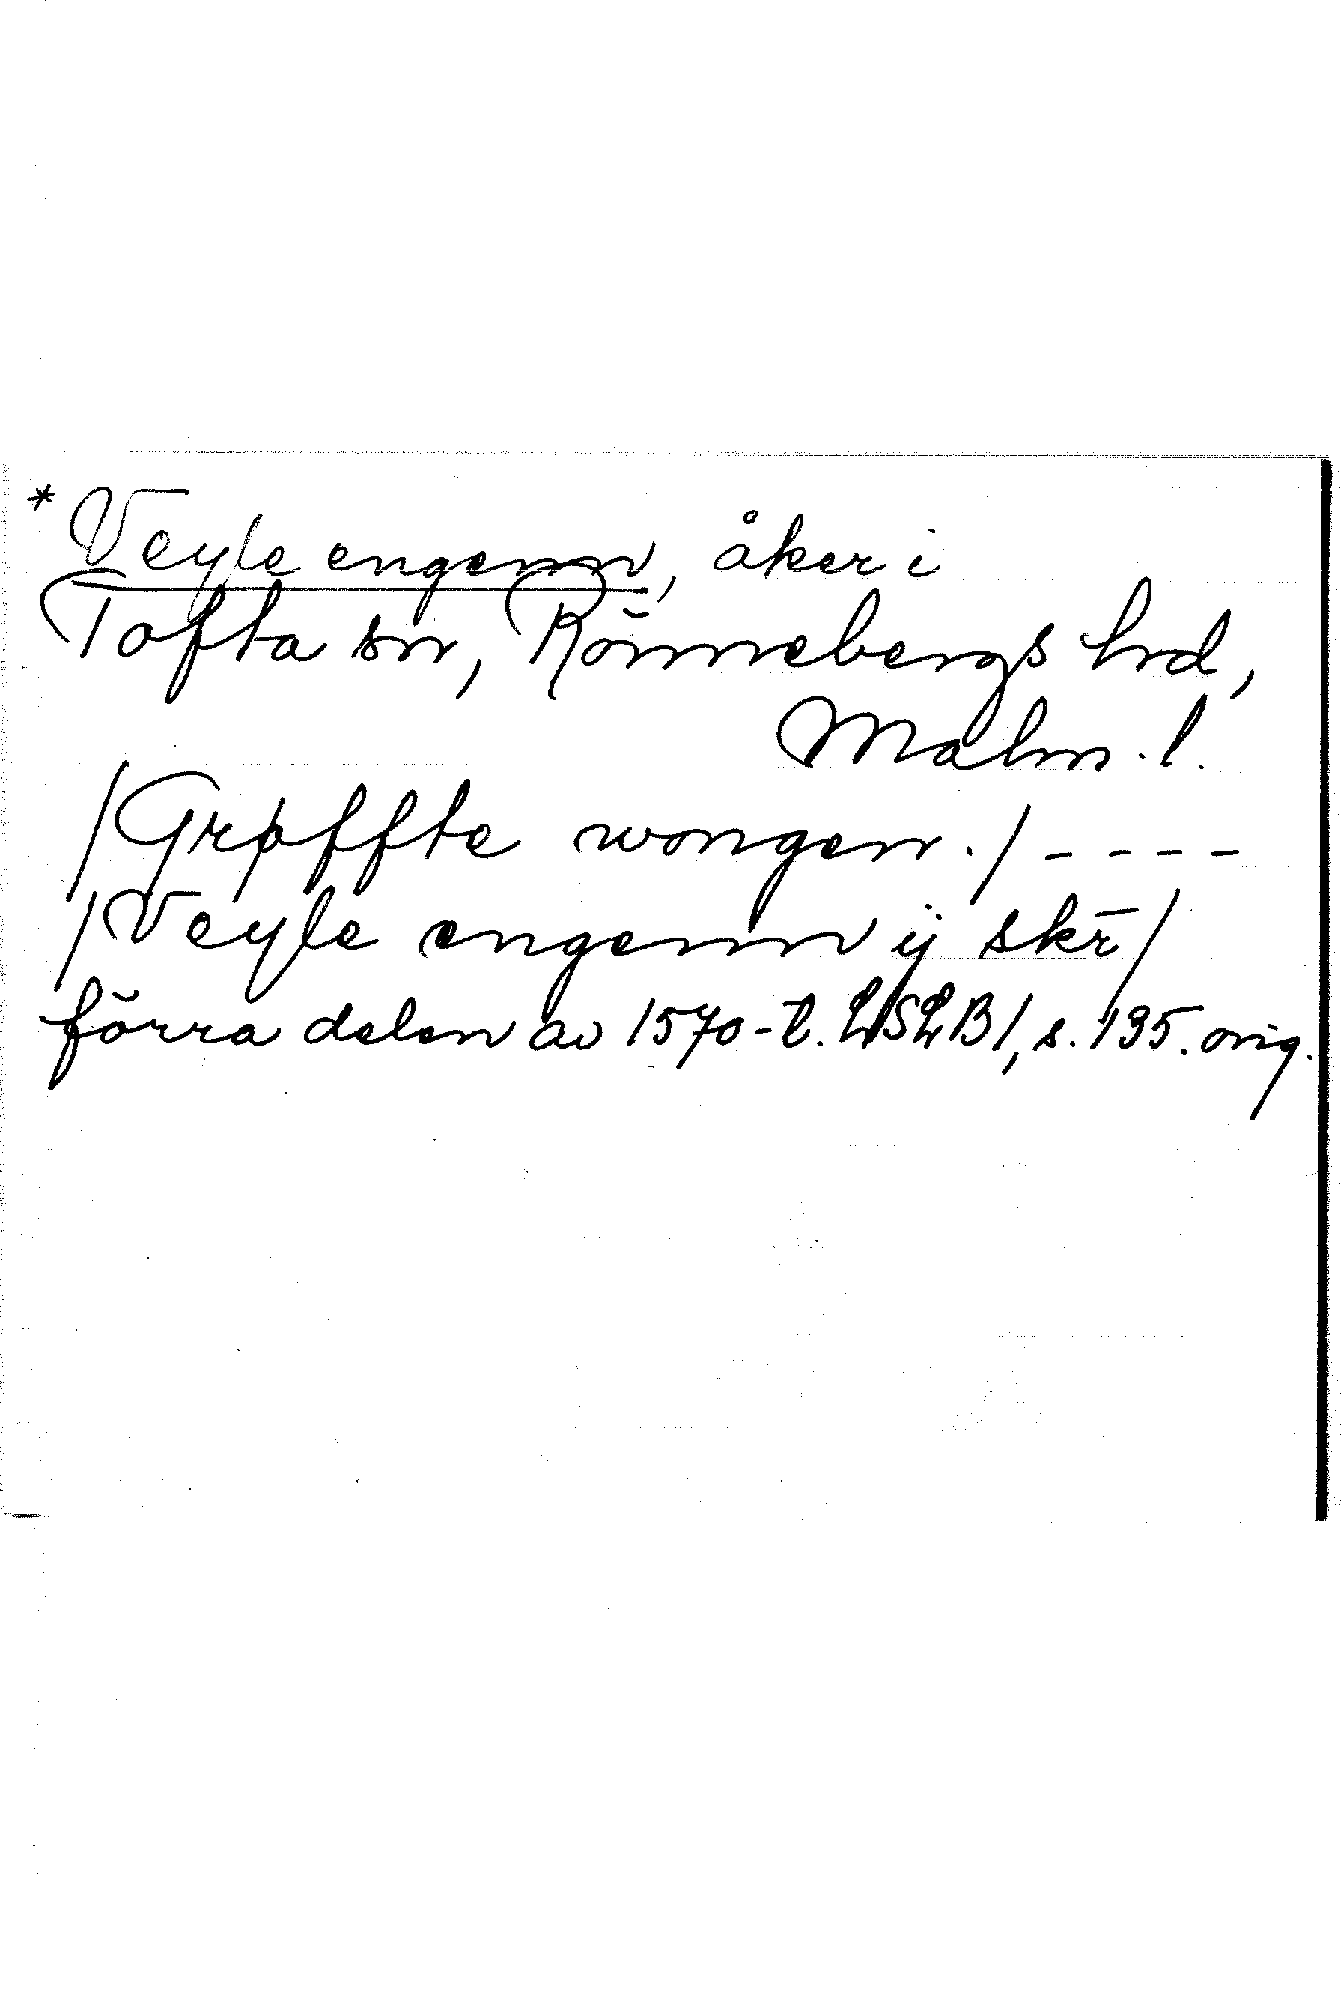 * Veyle engenn, åker i
Tofta sn, Rönnebergs hrd,
Malm. l.
/Grøffte wongen./ - - - -
/Veyle engenn ij skr̄/
förra delen av 1570-t. LSLB1, s. 195. orig.